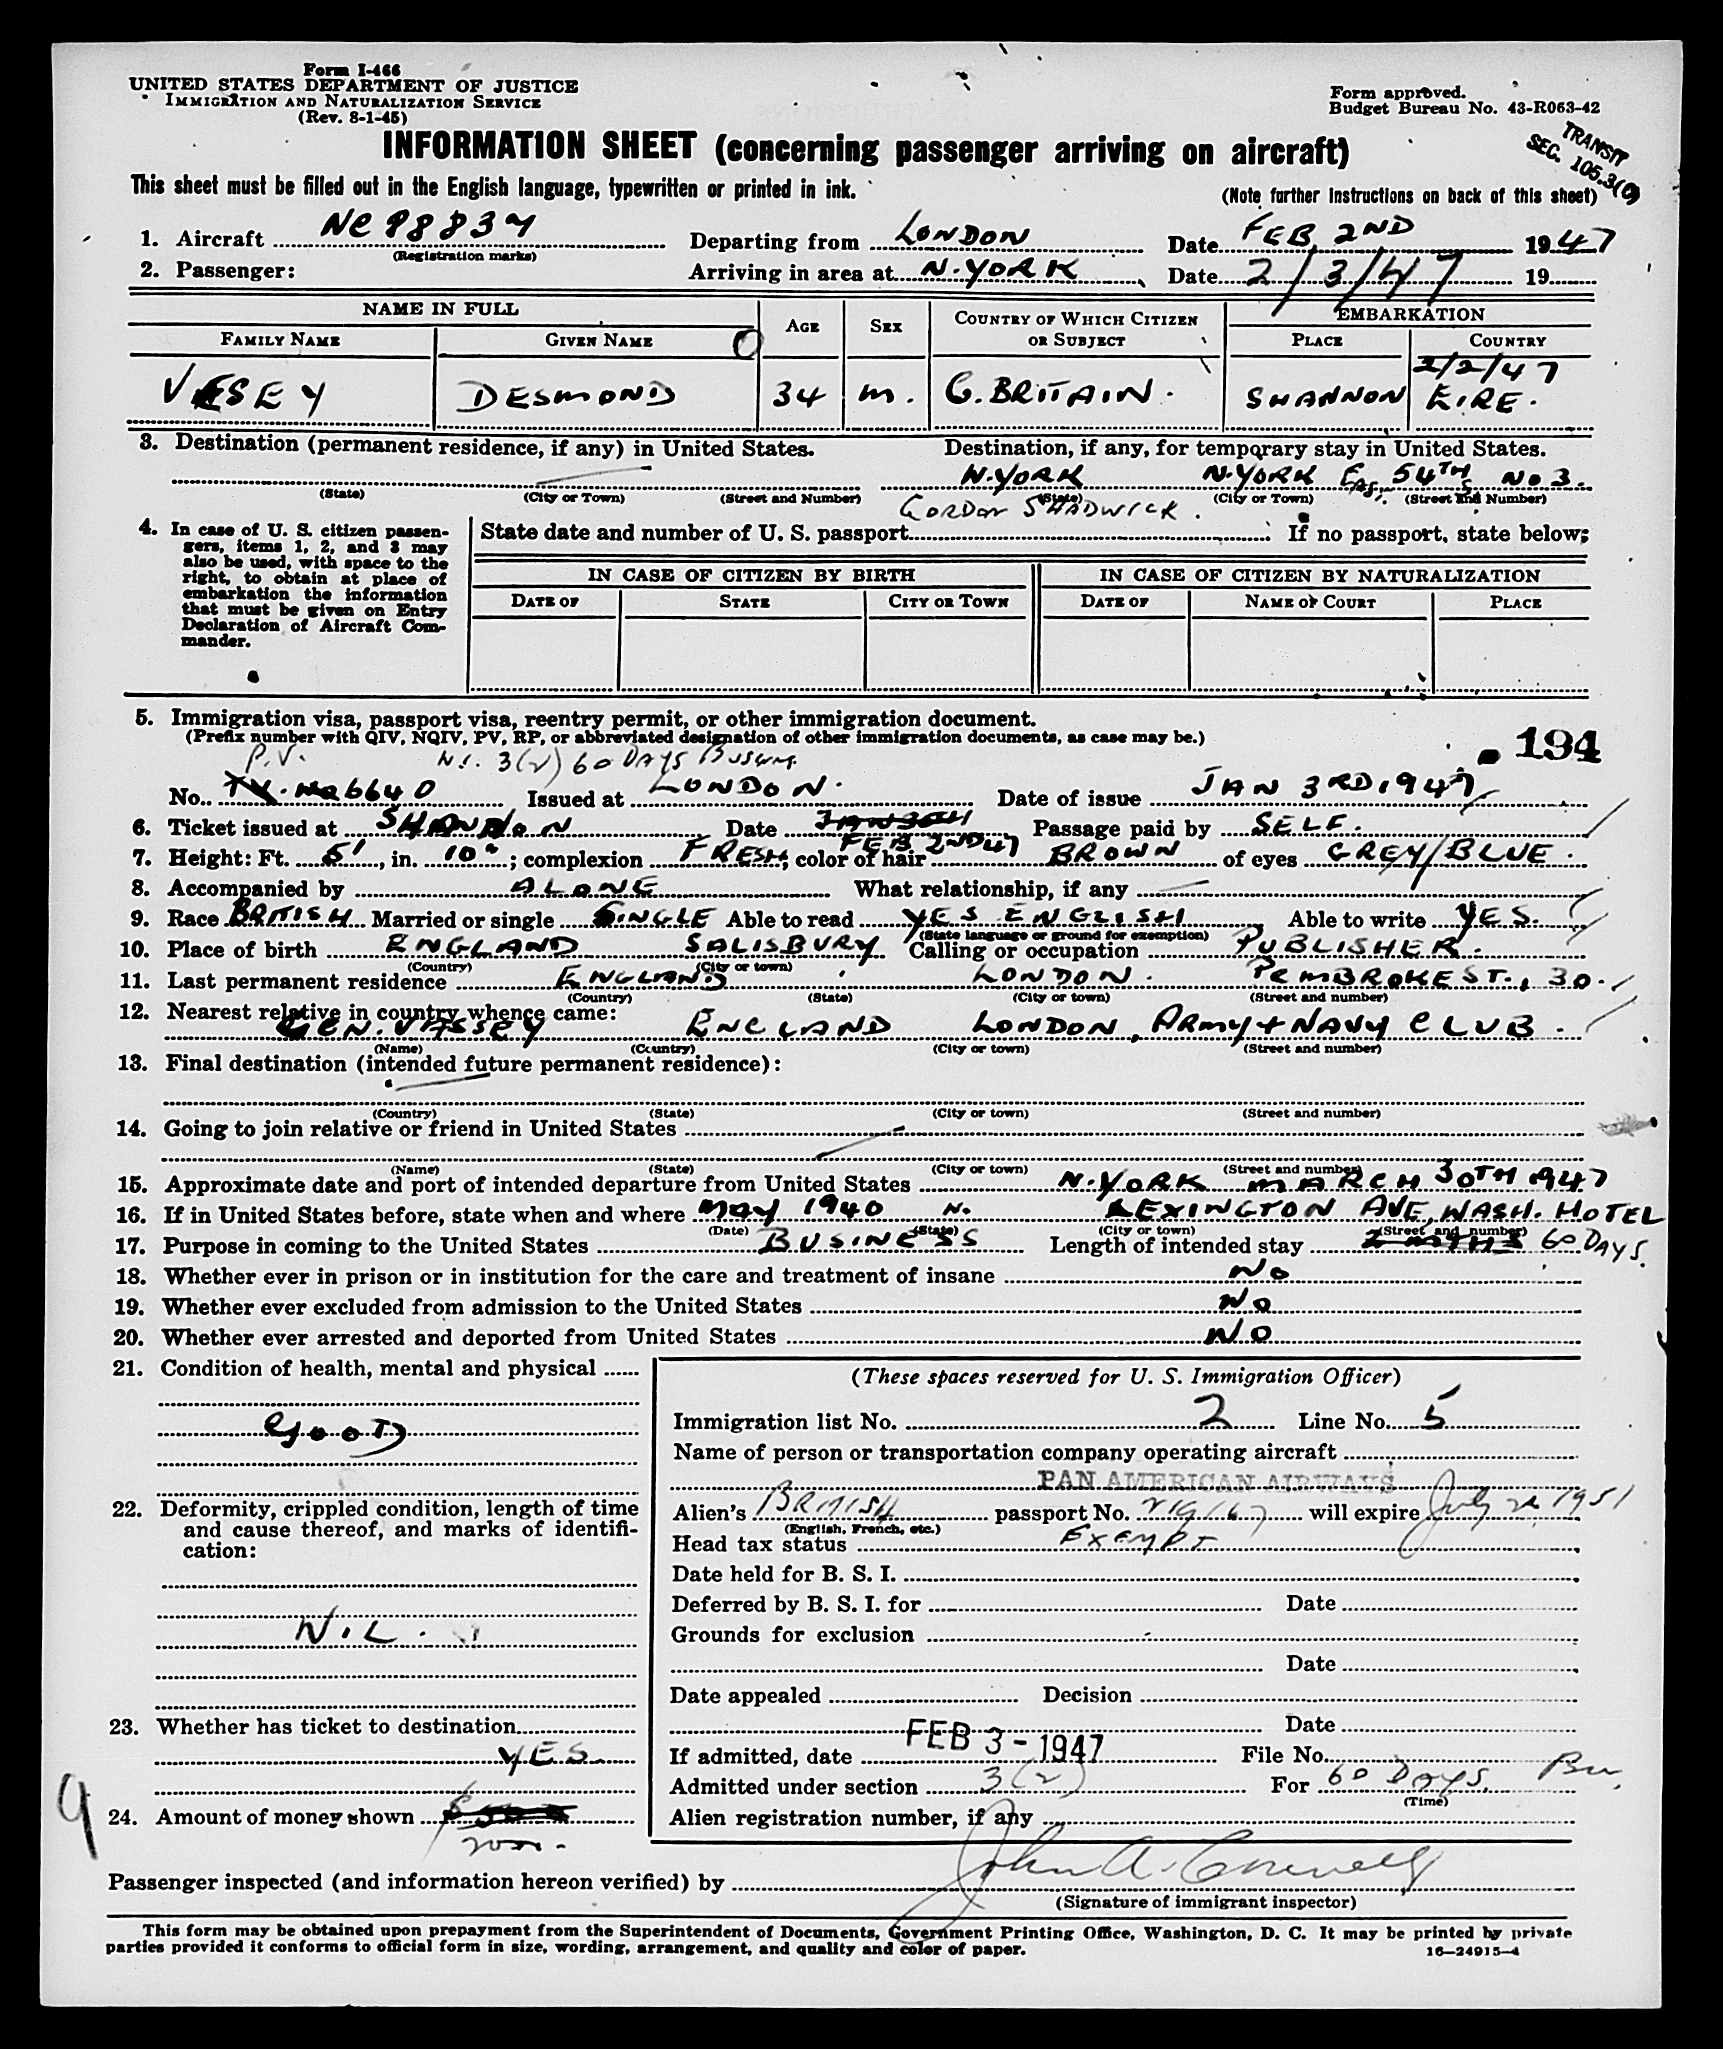 Form I-466
UNITED STATES DEPARTMENT OF JUSTICE
IMMIGRATION AND NATURALIZATION SERVICE
(Rev. 8-1-45)
Form approved.
Budget Bureau No. 43-R063-42
TRANSIT
SEC. 105.3(C)
INFORMATION SHEET (concerning passenger arriving on aircraft)
This sheet must be filled out in the English language, typewritten or printed in ink.
(Note further instructions on back of this sheet)
1. Aircraft NC 88837 Departing from LONDON Date FEB. 2ND 1947
(Registration marks)
2. Passenger: Arriving in area at N. YORK Date 2/3/47 19
NAME IN FULL AGE SEX COUNTRY OF WHICH CITIZEN OR SUBJECT EMBARKATION
FAMILY NAME GIVEN NAME PLACE COUNTRY
2/2/47
VESEY DESMOND 34 M. G. BRITAIN. SHANNON EIRE.
3. Destination (permanent residence, if any) in United States. Destination, if any, for temporary stay in United States.
N. YORK N. YORK EAST 54TH S No 3.
(State) (City or Town) (Street and Number) (State) (City or Town) (Street and Number)
GORDON SHADWICK.
4. In case of U. S. citizen passengers, items 1, 2, and 3 may also be used, with space to the right, to obtain at place of embarkation the information that must be given on Entry Declaration of Aircraft Commander.
State date and number of U. S. passport If no passport, state below:
IN CASE OF CITIZEN BY BIRTH IN CASE OF CITIZEN BY NATURALIZATION
DATE OF STATE CITY OR TOWN DATE OF NAME OF COURT PLACE
5. Immigration visa, passport visa, reentry permit, or other immigration document.
(Prefix number with QIV, NQIV, PV, RP, or abbreviated designation of other immigration documents, as case may be.)
194
P.V. 3(2) 60 DAYS
No. 6640 Issued at LONDON. Date of issue JAN 3RD 1947
6. Ticket issued at SHANNON Date FEB 2ND 47 Passage paid by SELF.
7. Height: Ft. 5', in. 10"; complexion FRESH; color of hair BROWN of eyes GREY/BLUE.
8. Accompanied by ALONE What relationship, if any
9. Race BRITISH Married or single SINGLE Able to read YES ENGLISH Able to write YES.
(State language or ground for exemption)
10. Place of birth ENGLAND SALISBURY Calling or occupation PUBLISHER.
(Country) (City or town)
11. Last permanent residence ENGLAND LONDON. PEMBROKE ST., 30.
(Country) (State) (City or town) (Street and number)
12. Nearest relative in country whence came:
GEN. VASSEY ENGLAND LONDON, ARMY + NAVY CLUB.
(Name) (Country) (City or town) (Street and number)
13. Final destination (intended future permanent residence):
(Country) (State) (City or town) (Street and number)
14. Going to join relative or friend in United States
(Name) (State) (City or town) (Street and number)
15. Approximate date and port of intended departure from United States N. YORK MARCH 30TH 1947
16. If in United States before, state when and where MAY 1940 N. LEXINGTON AVE, WASH. HOTEL
(Date) (State) (City or town) (Street and number)
17. Purpose in coming to the United States BUSINESS Length of intended stay 60 DAYS.
18. Whether ever in prison or in institution for the care and treatment of insane NO
19. Whether ever excluded from admission to the United States NO
20. Whether ever arrested and deported from United States NO
21. Condition of health, mental and physical
GOOD
22. Deformity, crippled condition, length of time and cause thereof, and marks of identification:
NIL.
23. Whether has ticket to destination
YES
24. Amount of money shown
(These spaces reserved for U. S. Immigration Officer)
Immigration list No. 2 Line No. 5
Name of person or transportation company operating aircraft
PAN AMERICAN AIRWAYS
Alien's BRITISH passport No. 219167 will expire July 1951
(English, French, etc.)
Head tax status Exempt
Date held for B. S. I.
Deferred by B. S. I. for Date
Grounds for exclusion
Date
Date appealed Decision
Date
If admitted, date FEB 3 - 1947 File No.
Admitted under section 3(2) For 60 Days.
(Time)
Alien registration number, if any
9
Passenger inspected (and information hereon verified) by John A.
(Signature of immigrant inspector)
This form may be obtained upon prepayment from the Superintendent of Documents, Government Printing Office, Washington, D. C. It may be printed by private
parties provided it conforms to official form in size, wording, arrangement, and quality and color of paper.
16—24915-4